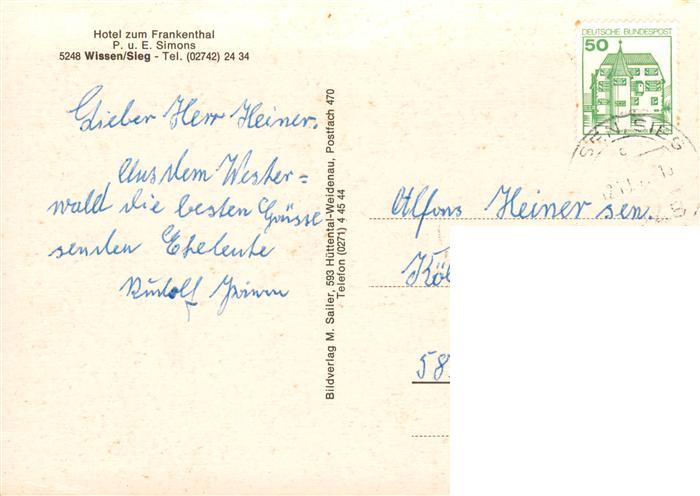 Hotel zum Frankenthal
P. u. E. Simons
5248 Wissen/Sieg - Tel. (02742) 24 34
Lieber Herr Heiner.
Aus dem Wester=
wald die besten Grüsse
senden Eheleute
Rudolf
Bildverlag M. Sailer, 593 Hüttental-Weidenau, Postfach 470
Telefon (0271) 4 45 44
50
DEUTSCHE BUNDESPOST
SEN SIEG
Alfons Heiner sen.